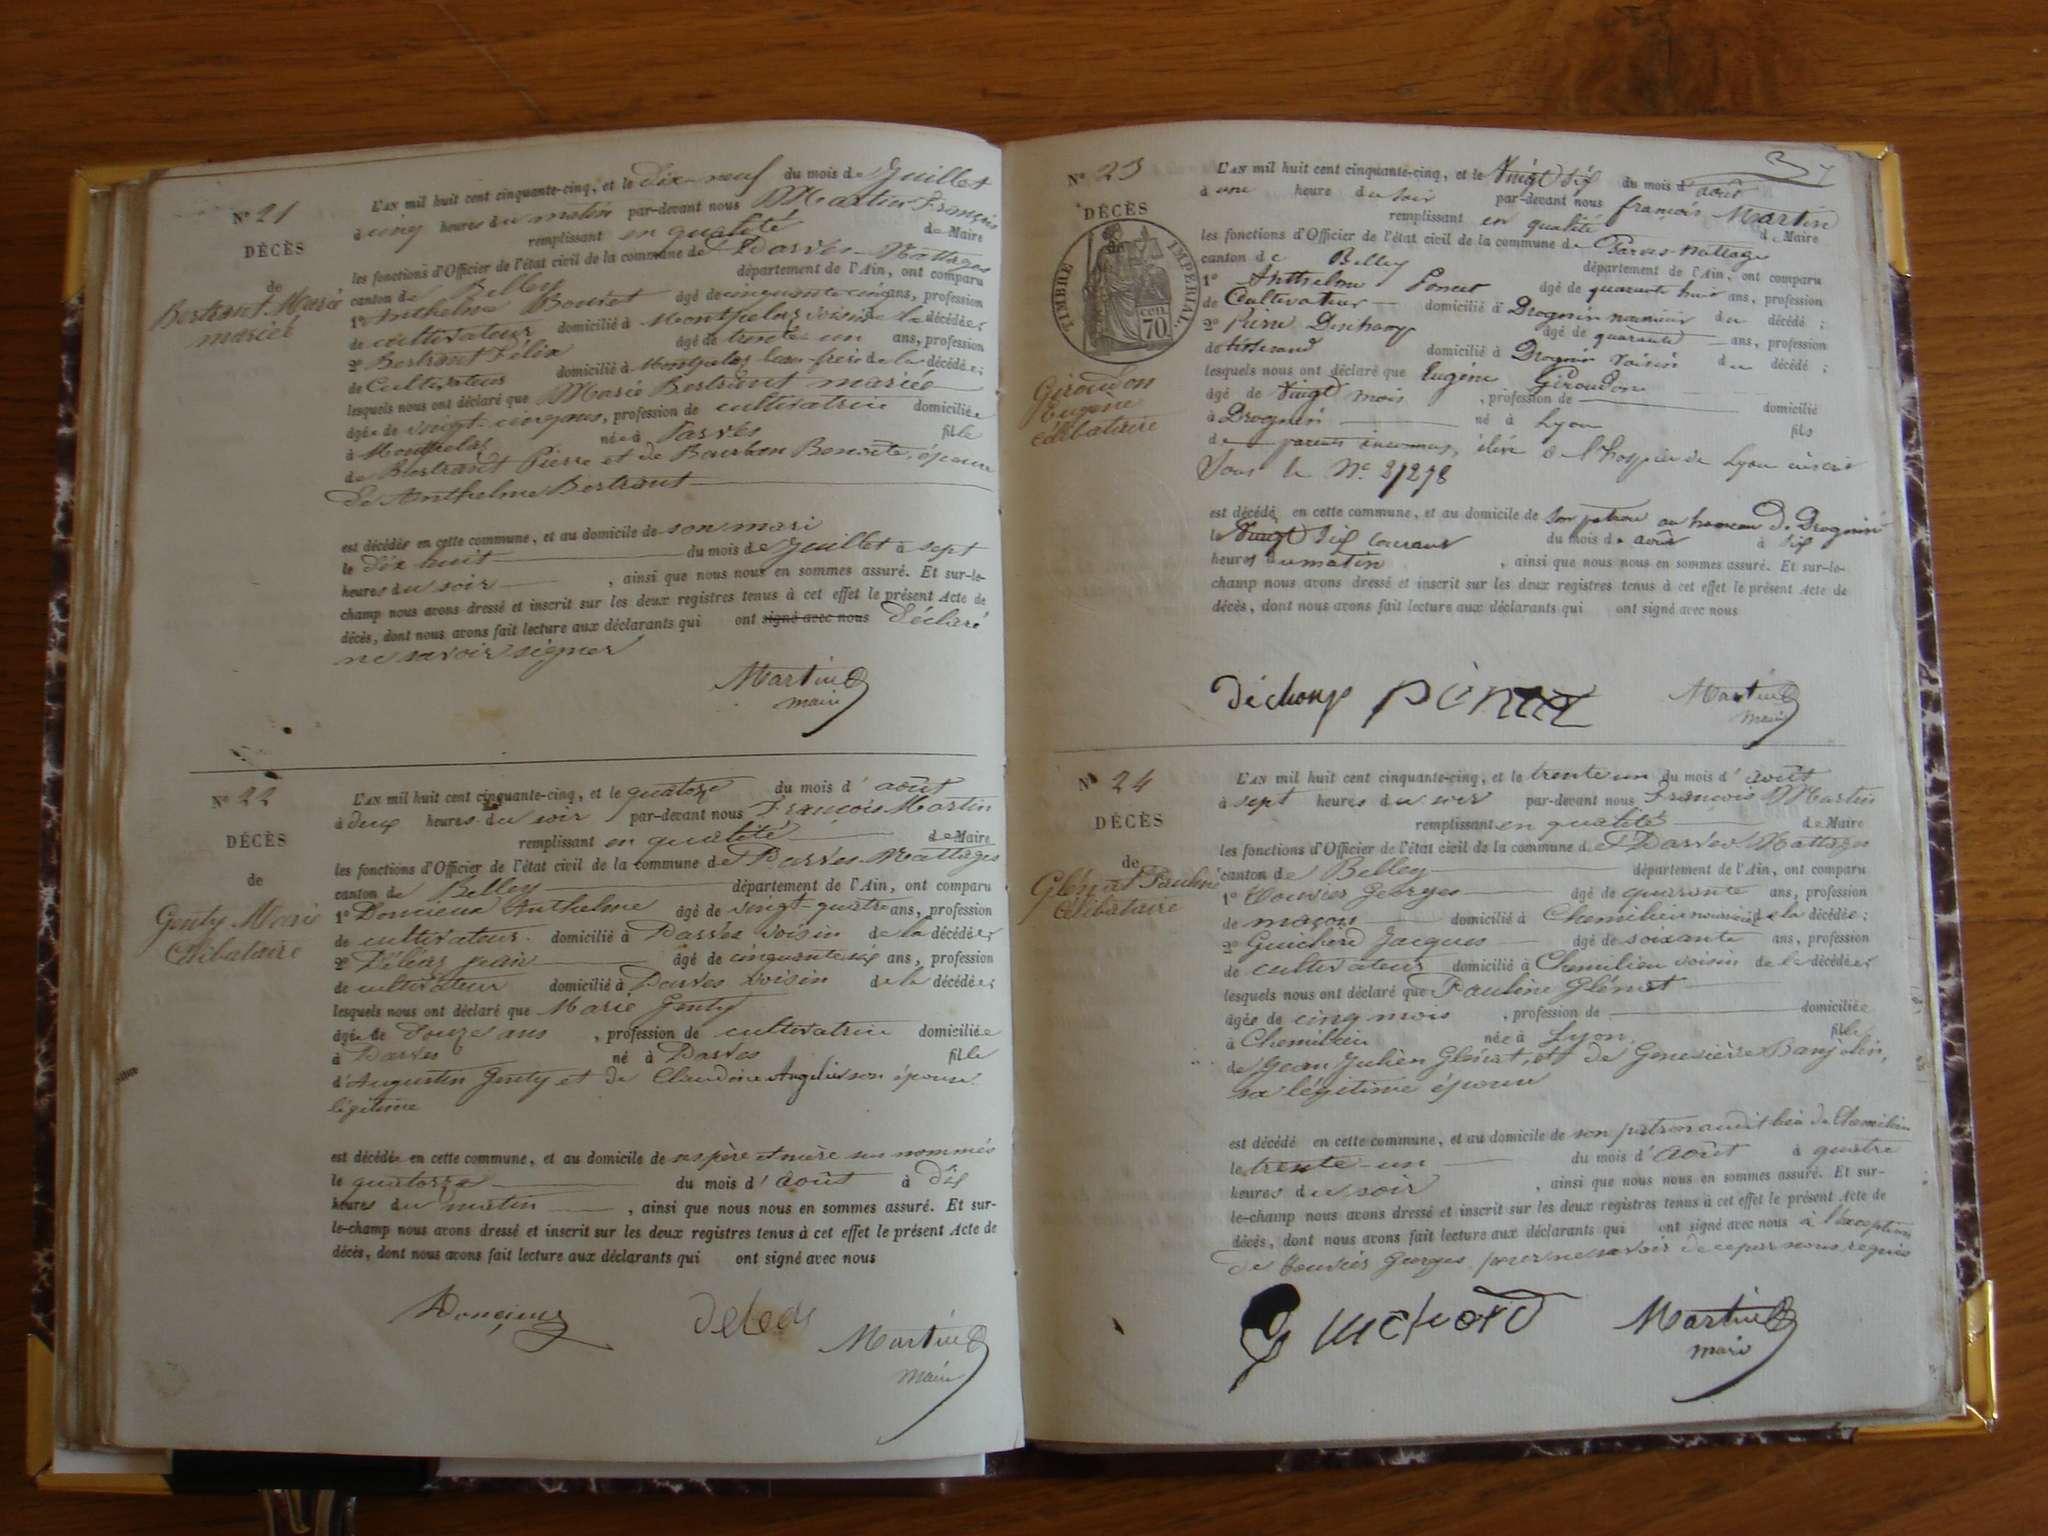 Nº 21
DÉCÈS
de
Bertrant Marie
mariée
L'AN mil huit cent cinquante-cinq, et le dix-neuf du mois de Juillet
à cinq heures du matin par-devant nous Martin François
remplissant en qualité de Maire
les fonctions d'Officier de l'état civil de la commune de Parves-Nattages
canton de Belley département de l'Ain, ont comparu
1º Anthelme âgé de cinquante cinq ans, profession
de cultivateur domicilié à Montpelas voisin de la décédée;
2º Bertrant Félix âgé de trente-un ans, profession
de Cultivateur domicilié à Montpelas beau-frère de la décédée;
lesquels nous ont déclaré que Marie Bertrant mariée
âgée de vingt-cinq ans, profession de cultivatrice domiciliée
à Montpelas née à Parves fille
de Bertrant Pierre et de Benoite, épouse
de Anthelme Bertrant
est décédée en cette commune, et au domicile de son mari
le dix huit du mois de Juillet à sept
heures du soir , ainsi que nous nous en sommes assuré. Et sur-le-
champ nous avons dressé et inscrit sur les deux registres tenus à cet effet le présent Acte de
décès, dont nous avons fait lecture aux déclarants qui ont signé avec nous déclaré
ne savoir signer
Martin
maire
Nº 22
DÉCÈS
de
Genty Marie
Célibataire
L'AN mil huit cent cinquante-cinq, et le quatorze du mois d'août
à deux heures du soir par-devant nous François Martin
remplissant en qualité de Maire
les fonctions d'Officier de l'état civil de la commune de Parves Nattages
canton de Belley département de l'Ain, ont comparu
1º Doncieux Anthelme âgé de vingt-quatre ans, profession
de cultivateur domicilié à Parves voisin de la décédée;
2º Jean âgé de cinquante six ans, profession
de cultivateur domicilié à Parves voisin de la décédée;
lesquels nous ont déclaré que Marie Genty
âgée de douze ans , profession de cultivatrice domiciliée
à Parves né à Parves fille
d'Augustin Genty et de Claudine son épouse
légitime
est décédée en cette commune, et au domicile de ses père et mère sus nommés
le quatorze du mois d'août à dix
heures du matin , ainsi que nous nous en sommes assuré. Et sur-
le-champ nous avons dressé et inscrit sur les deux registres tenus à cet effet le présent Acte de
décès, dont nous avons fait lecture aux déclarants qui ont signé avec nous
Doncieux
Martin
maire
Nº 23
DÉCÈS
de
TIMBRE IMPÉRIAL
70 cen.
Giroudon
Eugène
célibataire
L'AN mil huit cent cinquante-cinq, et le vingt six du mois d'août
à une heure du soir par-devant nous françois Martin
remplissant en qualité de Maire
les fonctions d'Officier de l'état civil de la commune de Parves-nattage
canton de Belley département de l'Ain, ont comparu
1º Anthelme Ponet âgé de quarante huit ans, profession
de Cultivateur domicilié à Drognin nourricier du décédé;
2º Pierre Dechang âgé de quarante ans, profession
de tisserand domicilié à Drognin voisin du décédé;
lesquels nous ont déclaré que Eugène Giroudon
âgé de vingt mois , profession de domicilié
à Drognin né à Lyon fils
de parents inconnus, élève de l'hospice de Lyon inscrit
sous le Nº 21278
est décédé en cette commune, et au domicile de son patron au hameau de Drognin
le vingt six courant du mois de août à six
heures du matin , ainsi que nous nous en sommes assuré. Et sur-le-
champ nous avons dressé et inscrit sur les deux registres tenus à cet effet le présent Acte de
décès, dont nous avons fait lecture aux déclarants qui ont signé avec nous
Martin
maire
Nº 24
DÉCÈS
de
Glénat Pauline
Célibataire
L'AN mil huit cent cinquante-cinq, et le trente un du mois d'août
à sept heures du soir par-devant nous François Martin
remplissant en qualité de Maire
les fonctions d'Officier de l'état civil de la commune de Parves Nattages
canton de Belley département de l'Ain, ont comparu
1º Touvier Georges âgé de quarante ans, profession
de maçon domicilié à Chemilieu nourricier de la décédée;
2º Guicherd Jacques âgé de soixante ans, profession
de cultivateur domicilié à Chemilieu voisin de la décédée;
lesquels nous ont déclaré que Pauline Glénat
âgée de cinq mois , profession de domiciliée
à Chemilieu née à Lyon fille
de Jean Julien Glénat, et de Geneviève Banjolin,
sa légitime épouse
est décédé en cette commune, et au domicile de son patron audit lieu de Chemilieu
le trente-un du mois d'août à quatre
heures du soir , ainsi que nous nous en sommes assuré. Et sur-
le-champ nous avons dressé et inscrit sur les deux registres tenus à cet effet le présent Acte de
décès, dont nous avons fait lecture aux déclarants qui ont signé avec nous à l'exception
de Touvier Georges pour ne savoir de ce par nous requis
Guicherd
Martin
maire